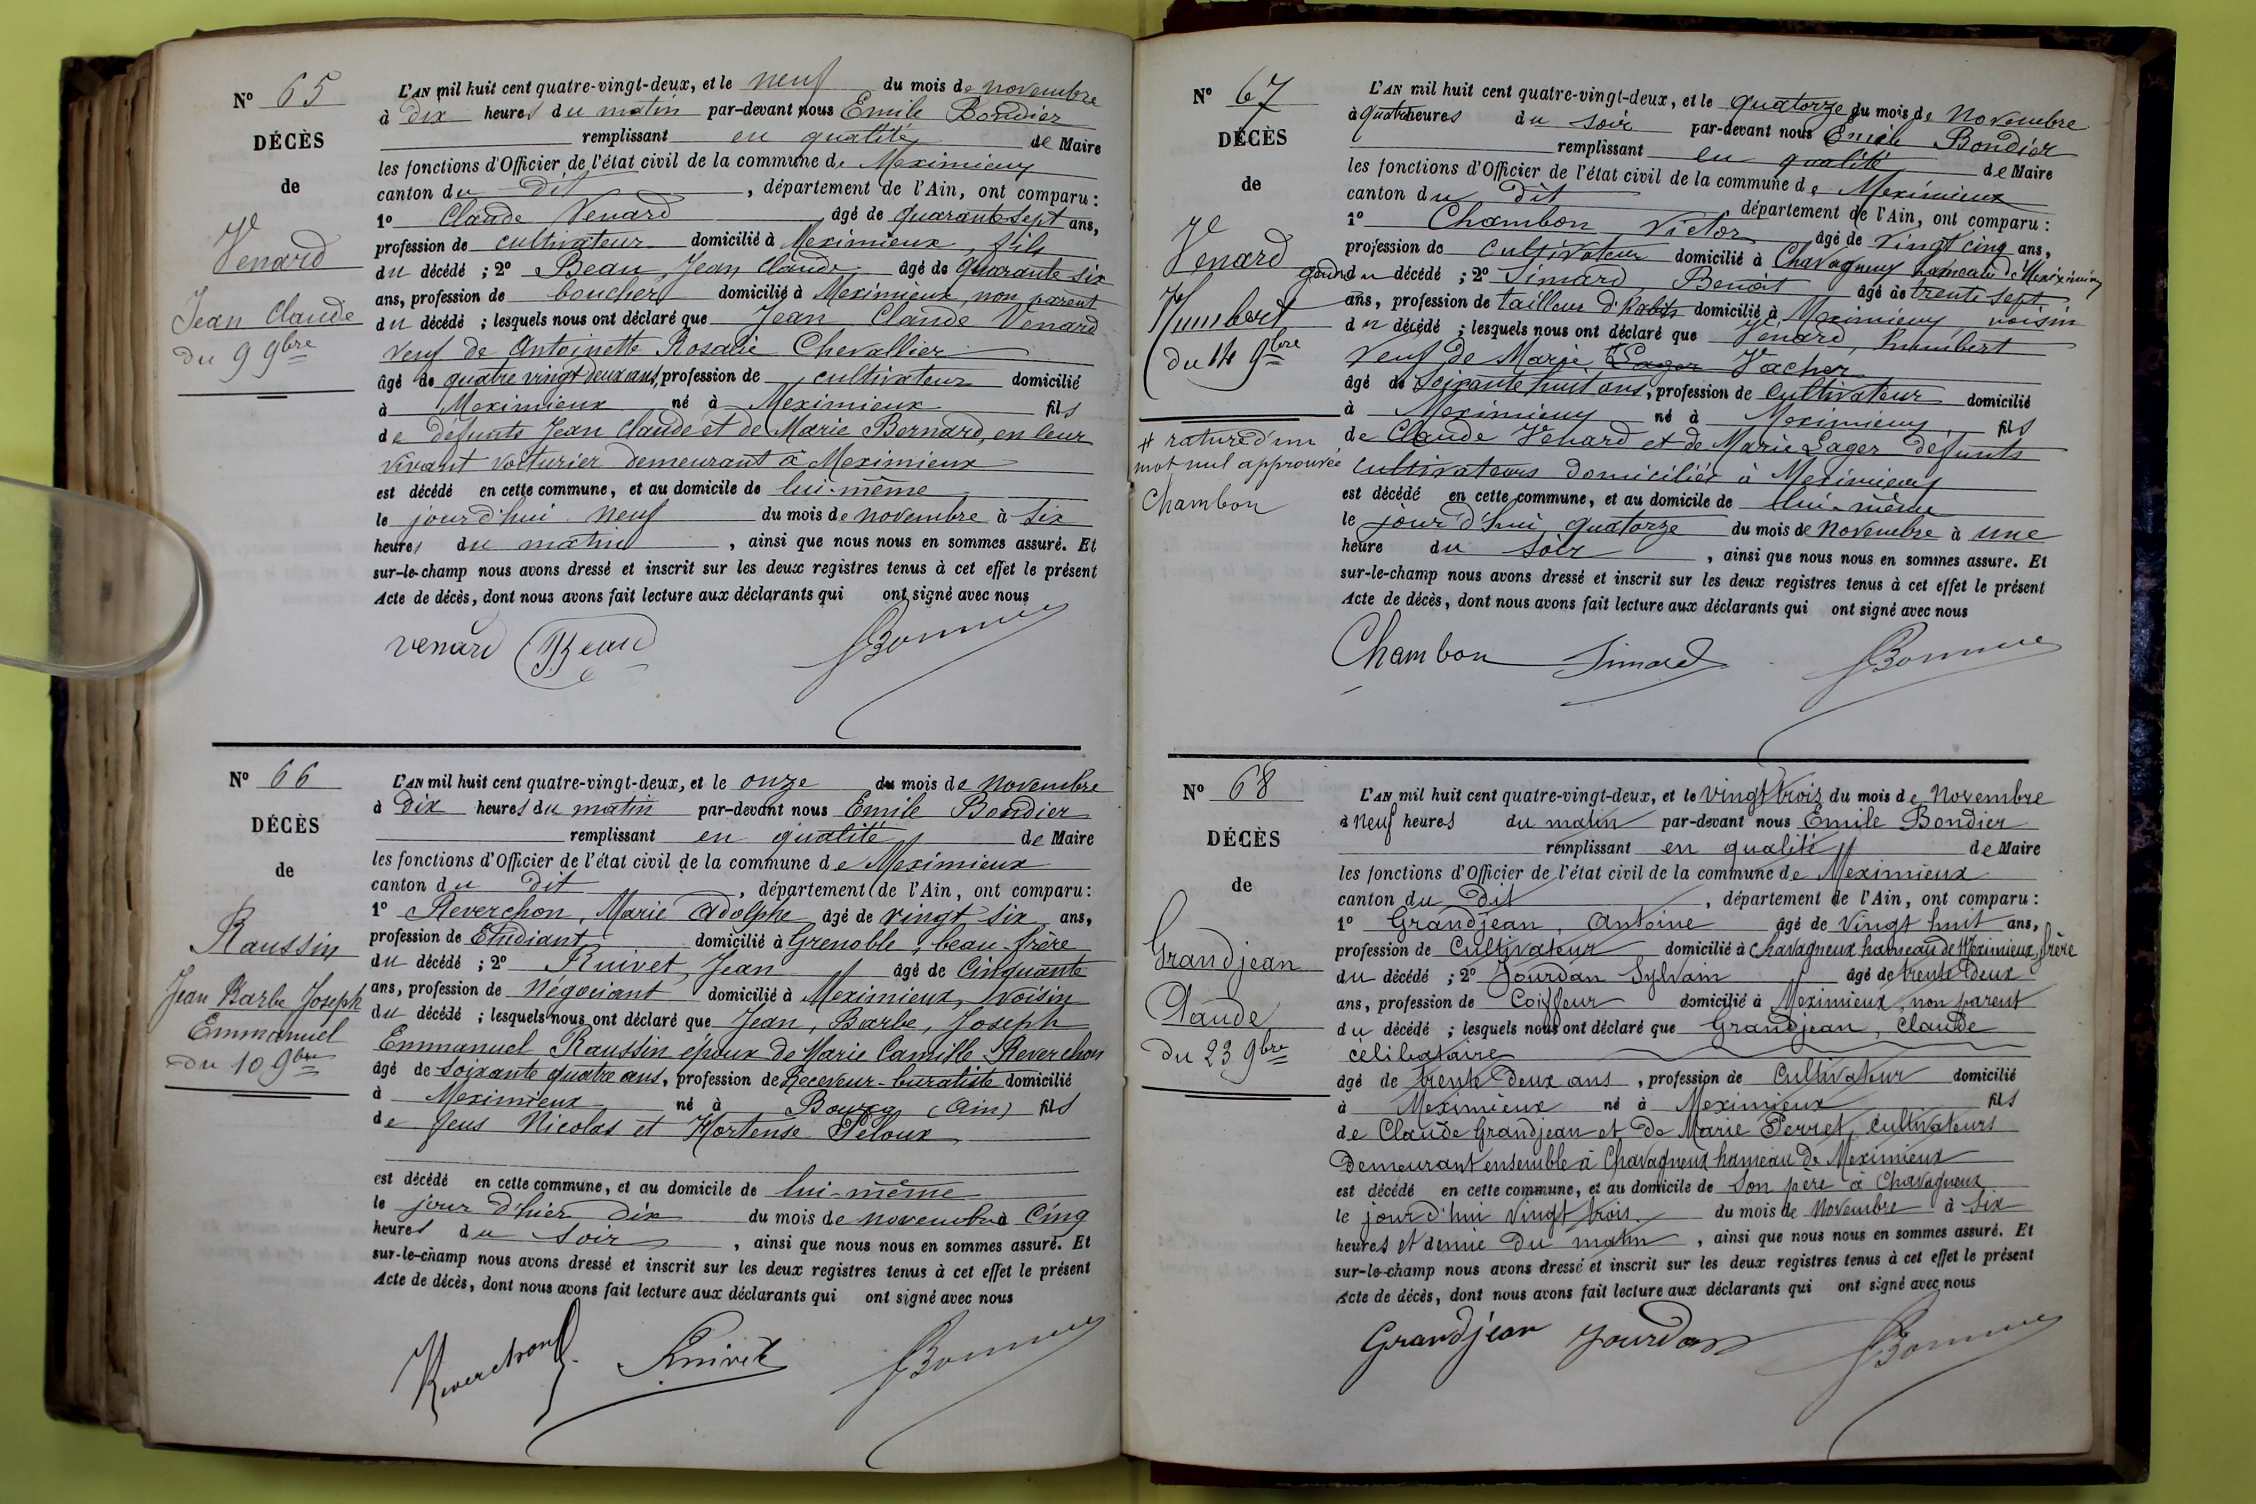 N° 65
DÉCÈS
de
Venard
Jean Claude
du 9 9bre
L'AN mil huit cent quatre-vingt-deux, et le neuf du mois de novembre
à dix heures du matin par-devant nous Emile Bondier
remplissant en qualité de Maire
les fonctions d'Officier de l'état civil de la commune de Meximieux
canton du dit, département de l'Ain, ont comparu :
1° Claude Venard âgé de quarante sept ans,
profession de cultivateur domicilié à Meximieux, fils
du décédé ; 2° Beau, Jean Claude âgé de quarante six
ans, profession de boucher domicilié à Meximieux, non parent
du décédé ; lesquels nous ont déclaré que Jean Claude Venard
veuf de Antoinette Rosalie Chevallier
âgé de quatre vingt deux ans, profession de cultivateur domicilié
à Meximieux né à Meximieux fils
de défunts Jean Claude et de Marie Bernard, en leur
vivant voiturier demeurant à Meximieux
est décédé en cette commune, et au domicile de lui-même
le jourd'hui neuf du mois de novembre à six
heures du matin, ainsi que nous nous en sommes assuré. Et
sur-le-champ nous avons dressé et inscrit sur les deux registres tenus à cet effet le présent
Acte de décès, dont nous avons fait lecture aux déclarants qui ont signé avec nous
venard Beau
N° 66
DÉCÈS
de
Raussin
Jean Barbe Joseph
Emmanuel
du 10 9bre
L'AN mil huit cent quatre-vingt-deux, et le onze du mois de novembre
à dix heures du matin par-devant nous Emile Bondier
remplissant en qualité de Maire
les fonctions d'Officier de l'état civil de la commune de Meximieux
canton du dit, département de l'Ain, ont comparu :
1° Reverchon, Marie Adolphe âgé de vingt six ans,
profession de Etudiant domicilié à Grenoble, beau-frère
du décédé ; 2° Ruivet, Jean âgé de cinquante
ans, profession de Négociant domicilié à Meximieux, voisin
du décédé ; lesquels nous ont déclaré que Jean, Barbe, Joseph
Emmanuel Raussin époux de Marie Camille Reverchon
âgé de soixante quatre ans, profession de Receveur-buraliste domicilié
à Meximieux né à Bourg (Ain) fils
de feus Nicolas et Hortense Peloux
est décédé en cette commune, et au domicile de lui-même
le jour d'hier dix du mois de novembre à cinq
heures du soir, ainsi que nous nous en sommes assuré. Et
sur-le-champ nous avons dressé et inscrit sur les deux registres tenus à cet effet le présent
Acte de décès, dont nous avons fait lecture aux déclarants qui ont signé avec nous
Reverchon Ruivet
N° 67
DÉCÈS
de
Venard
Humbert
du 14 9bre
# rature d'un
mot nul approuvée
Chambon
L'AN mil huit cent quatre-vingt-deux, et le quatorze du mois de Novembre
à quatre heures du soir par-devant nous Emile Bondier
remplissant en qualité de Maire
les fonctions d'Officier de l'état civil de la commune de Meximieux
canton du dit département de l'Ain, ont comparu :
1° Chambon Victor âgé de vingt cinq ans,
profession de cultivateur domicilié à Chavagneux hameau de Meximieux
gendre du décédé ; 2° Simard, Benoit âgé de trente sept
ans, profession de tailleur d'habits domicilié à Meximieux voisin
du décédé ; lesquels nous ont déclaré que Venard, humbert
veuf de Marie # Lager Vacher
âgé de soixante huit ans, profession de cultivateur domicilié
à Meximieux né à Meximieux fils
de Claude Venard et de Marie Lager défunts
cultivateurs domiciliés à Meximieux
est décédé en cette commune, et au domicile de lui-même
le jour d'hui quatorze du mois de Novembre à une
heure du soir, ainsi que nous nous en sommes assuré. Et
sur-le-champ nous avons dressé et inscrit sur les deux registres tenus à cet effet le présent
Acte de décès, dont nous avons fait lecture aux déclarants qui ont signé avec nous
Chambon Simard
N° 68
DÉCÈS
de
Grandjean
Claude
du 23 9bre
L'AN mil huit cent quatre-vingt-deux, et le vingt trois du mois de Novembre
à neuf heures du matin par-devant nous Emile Bondier
remplissant en qualité de Maire
les fonctions d'Officier de l'état civil de la commune de Meximieux
canton du Dit, département de l'Ain, ont comparu :
1° Grandjean, Antoine âgé de vingt huit ans,
profession de Cultivateur domicilié à Chavagneux hameau de Meximieux, frère
du décédé ; 2° Jourdan Sylvain âgé de trente deux
ans, profession de Coiffeur domicilié à Meximieux, non parent
du décédé ; lesquels nous ont déclaré que Grandjean, Claude
célibataire
âgé de trente deux ans, profession de Cultivateur domicilié
à Meximieux né à Meximieux fils
de Claude Grandjean et de Marie Perret, cultivateurs
Demeurant ensemble à Chavagneux hameau de Meximieux
est décédé en cette commune, et au domicile de son père à Chavagneux
le jour d'hui vingt trois du mois de Novembre à six
heures et demie du matin, ainsi que nous nous en sommes assuré. Et
sur-le-champ nous avons dressé et inscrit sur les deux registres tenus à cet effet le présent
Acte de décès, dont nous avons fait lecture aux déclarants qui ont signé avec nous
Grandjean Jourdan